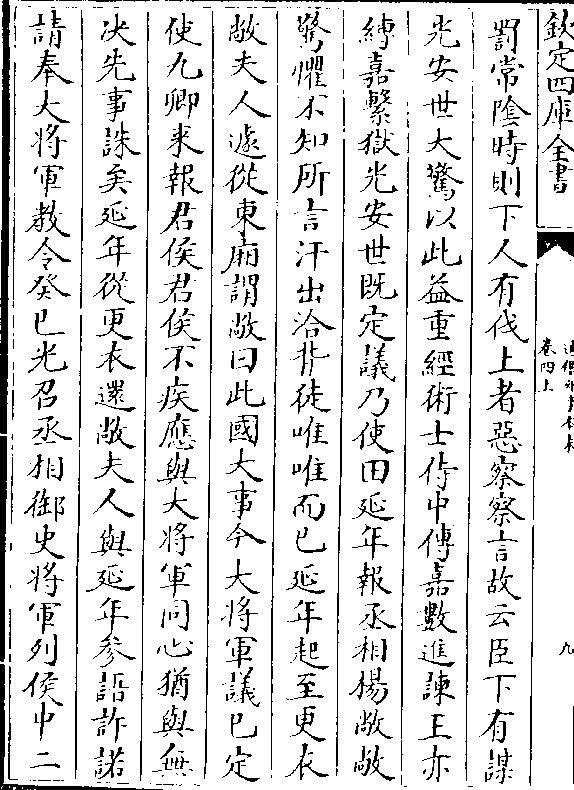 欽定四庫全書
卷四上
九
罰常陰時則下人有伐上者惡察察言故云臣下有謀
光安世大驚以此益重經術士侍中傅嘉數進諫王亦
縛嘉繫獄光安世既定議乃使田延年報丞相楊敞敞
驚懼不知所言汗出洽背徒唯唯而已延年起至更衣
敞夫人遽從東廂謂敞曰此國大事今大將軍議已定
使九卿來報君侯君侯不疾應與大將軍同心猶與無
决先事誅矣延年從更衣還敞夫人與延年參語許諾
請奉大將軍教令癸巳光召丞相御史將軍列侯中二